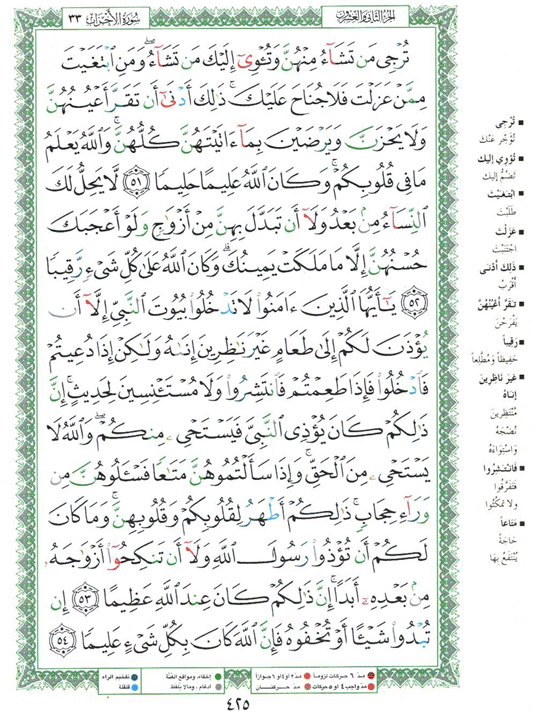 الجزء الثاني والعشرون
سُورَةُ الأَحْزَاب ٣٣
تُرْجِى مَن تَشَآءُ مِنْهُنَّ وَتُـْٔوِىٓ إِلَيْكَ مَن تَشَآءُ ۖ وَمَنِ ٱبْتَغَيْتَ
مِمَّنْ عَزَلْتَ فَلَا جُنَاحَ عَلَيْكَ ۚ ذَٰلِكَ أَدْنَىٰٓ أَن تَقَرَّ أَعْيُنُهُنَّ
وَلَا يَحْزَنَّ وَيَرْضَيْنَ بِمَآ ءَاتَيْتَهُنَّ كُلُّهُنَّ ۚ وَٱللَّهُ يَعْلَمُ
مَا فِى قُلُوبِكُمْ ۚ وَكَانَ ٱللَّهُ عَلِيمًا حَلِيمًا ٥١ لَّا يَحِلُّ لَكَ
ٱلنِّسَآءُ مِنۢ بَعْدُ وَلَآ أَن تَبَدَّلَ بِهِنَّ مِنْ أَزْوَٰجٍ وَلَوْ أَعْجَبَكَ
حُسْنُهُنَّ إِلَّا مَا مَلَكَتْ يَمِينُكَ ۗ وَكَانَ ٱللَّهُ عَلَىٰ كُلِّ شَىْءٍ رَّقِيبًا
٥٢ يَٰٓأَيُّهَا ٱلَّذِينَ ءَامَنُوا۟ لَا تَدْخُلُوا۟ بُيُوتَ ٱلنَّبِىِّ إِلَّآ أَن
يُؤْذَنَ لَكُمْ إِلَىٰ طَعَامٍ غَيْرَ نَٰظِرِينَ إِنَىٰهُ وَلَٰكِنْ إِذَا دُعِيتُمْ
فَٱدْخُلُوا۟ فَإِذَا طَعِمْتُمْ فَٱنتَشِرُوا۟ وَلَا مُسْتَـْٔنِسِينَ لِحَدِيثٍ ۚ إِنَّ
ذَٰلِكُمْ كَانَ يُؤْذِى ٱلنَّبِىَّ فَيَسْتَحْىِۦ مِنكُمْ ۖ وَٱللَّهُ لَا
يَسْتَحْىِۦ مِنَ ٱلْحَقِّ ۚ وَإِذَا سَأَلْتُمُوهُنَّ مَتَٰعًا فَسْـَٔلُوهُنَّ مِن
وَرَآءِ حِجَابٍ ۚ ذَٰلِكُمْ أَطْهَرُ لِقُلُوبِكُمْ وَقُلُوبِهِنَّ ۚ وَمَا كَانَ
لَكُمْ أَن تُؤْذُوا۟ رَسُولَ ٱللَّهِ وَلَآ أَن تَنكِحُوٓا۟ أَزْوَٰجَهُۥ
مِنۢ بَعْدِهِۦٓ أَبَدًا ۚ إِنَّ ذَٰلِكُمْ كَانَ عِندَ ٱللَّهِ عَظِيمًا ٥٣ إِن
تُبْدُوا۟ شَيْـًٔا أَوْ تُخْفُوهُ فَإِنَّ ٱللَّهَ كَانَ بِكُلِّ شَىْءٍ عَلِيمًا ٥٤
■ تُرْجِي
تُؤَخِّرُ عَنْكَ
■ تُؤْوِي إليك
تَضُمُّ إليك
■ ابْتَغَيْتَ
طَلَبْتَ
■ عَزَلْتَ
اجْتَنَبْتَ
■ ذَلِكَ أدْنَى
أَقْرَبُ
■ تَقَرَّ أَعْيُنُهُنَّ
يَفْرَحْنَ
■ رَقِيباً
حَفِيظاً وَمُطَّلِعاً
■ غَيْرَ نَاظِرِينَ
إنَاهُ
مُنْتَظِرِينَ
نُضْجَهُ
وَاسْتِوَاءَهُ
■ فَانْتَشِرُوا
فَتَفَرَّقُوا
ولا تمكُثُوا
■ مَتَاعاً
حَاجَةً
يُنْتَفَعُ بِهَا
مدّ ٦ حركات لزوماً
مدّ ٢ أو ٤ أو ٦ جوازاً
إخفاء، ومواقع الغُنَّة
تفخيم الراء
مدّ واجب ٤ أو ٥ حركات
مدّ حركتان
إدغام ، وما لا يُلفظ
قلقلة
٤٢٥